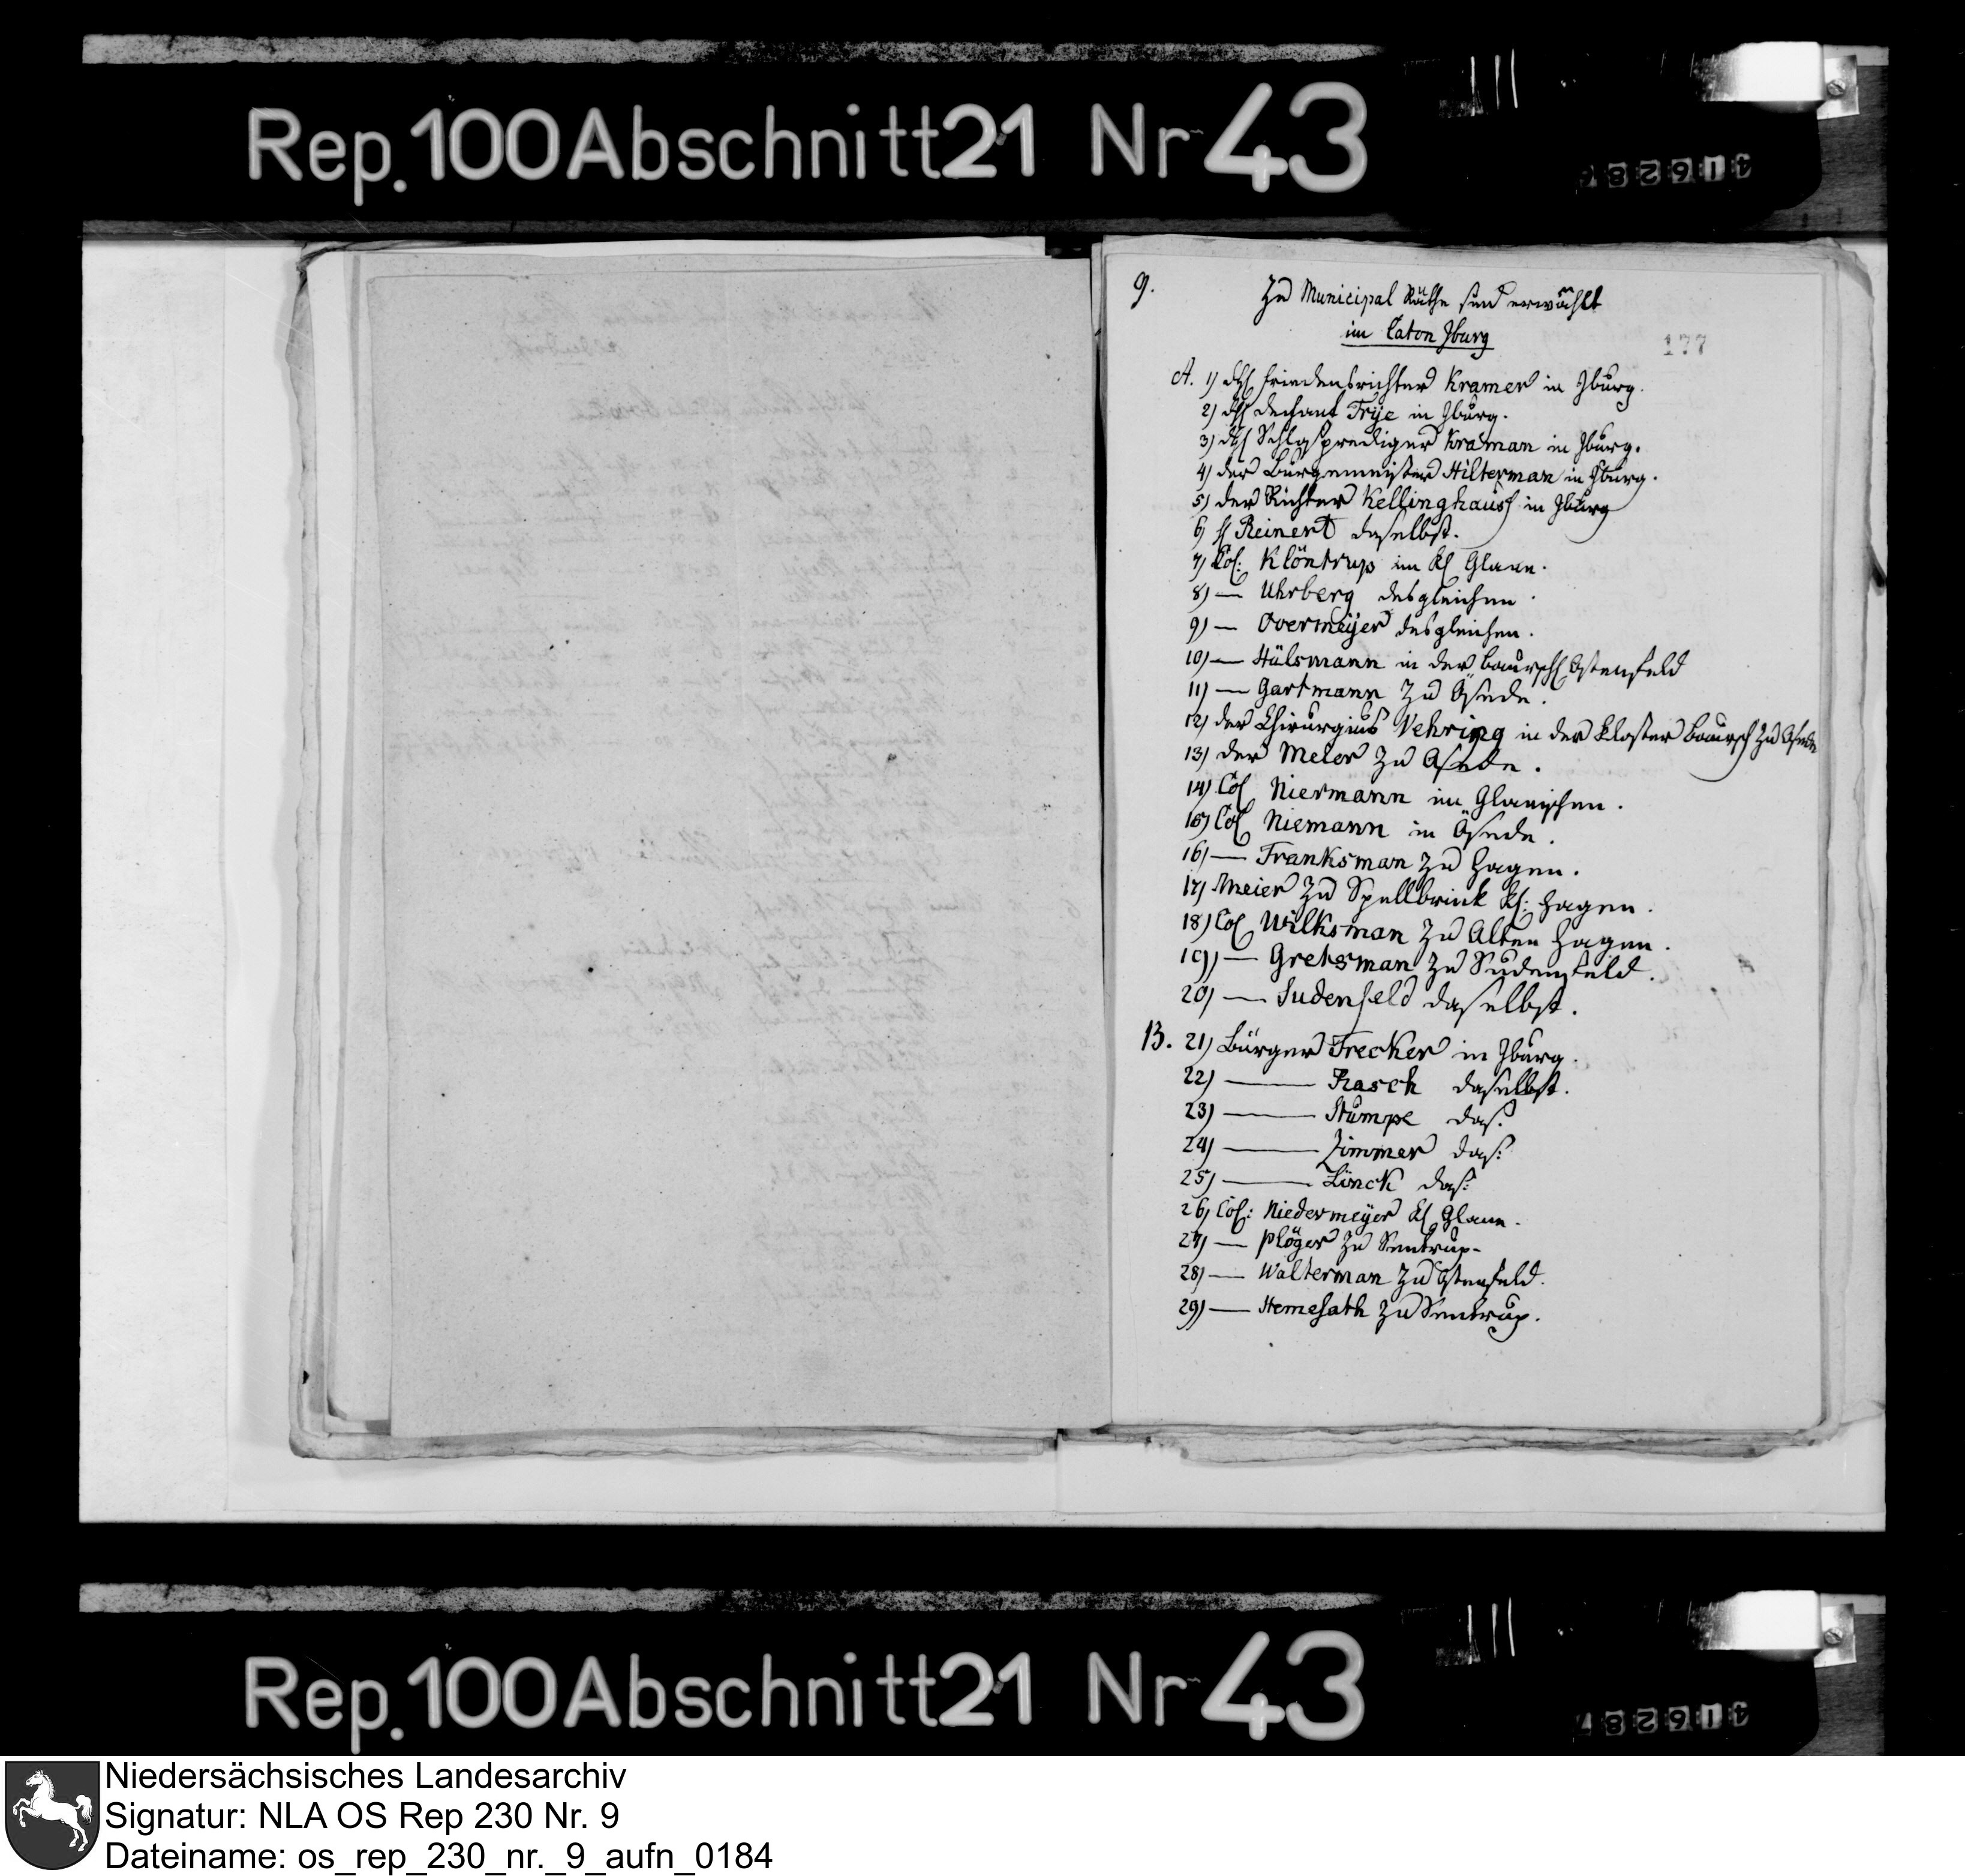 Rep. 100 Abschnitt 21 Nr 43
9.
Zu Municipal Räthe sind erwählt
im Caton Jburg
177
A. 1) Friedensrichter Kramer in Jburg.
2) Dechant Frye in Jburg.
3) Schlosprediger Kraman in Jburg.
4) der Bürgermeister Hilterman in Jburg.
5) der Richter Kellinghaus in Jburg
6) H Reinert daselbst.
7) Col: Klöntrup im K Glane.
8) — Uhrberg desgleichen.
9) — Overmeijer desgleichen.
10) — Hülsmann in der Baursch Ostenfeld
11) — Gartmann zu Ösede.
12) der Chirurgius Vehring in der Kloster Baursch zu Osede
13) der Meier zu Osede.
14) Col Niermann im Glanischen.
15) Col Niemann in Ösede.
16) — Franksman zu Hagen.
17) Meier zu Spellbrink K: Hagen.
18) Col Wilksman zu Alten Hagen.
19) — Gretsman zu Sudenfeld.
20) — Sudenfeld daselbst.
B. 21) Bürger Frecker in Jburg.
22) — Rasch daselbst.
23) — Stumpe das:
24) — Zimmer das:
25) — Linck das:
26) Col: Niedermeÿer K Glane.
27) — Plöger zu Sentrup.
28) — Walterman zu Ostenfeld.
29) — Hemesath zu Sentrup.
Rep. 100 Abschnitt 21 Nr 43
Niedersächsisches Landesarchiv
Signatur: NLA OS Rep 230 Nr. 9
Dateiname: os_rep_230_nr._9_aufn_0184